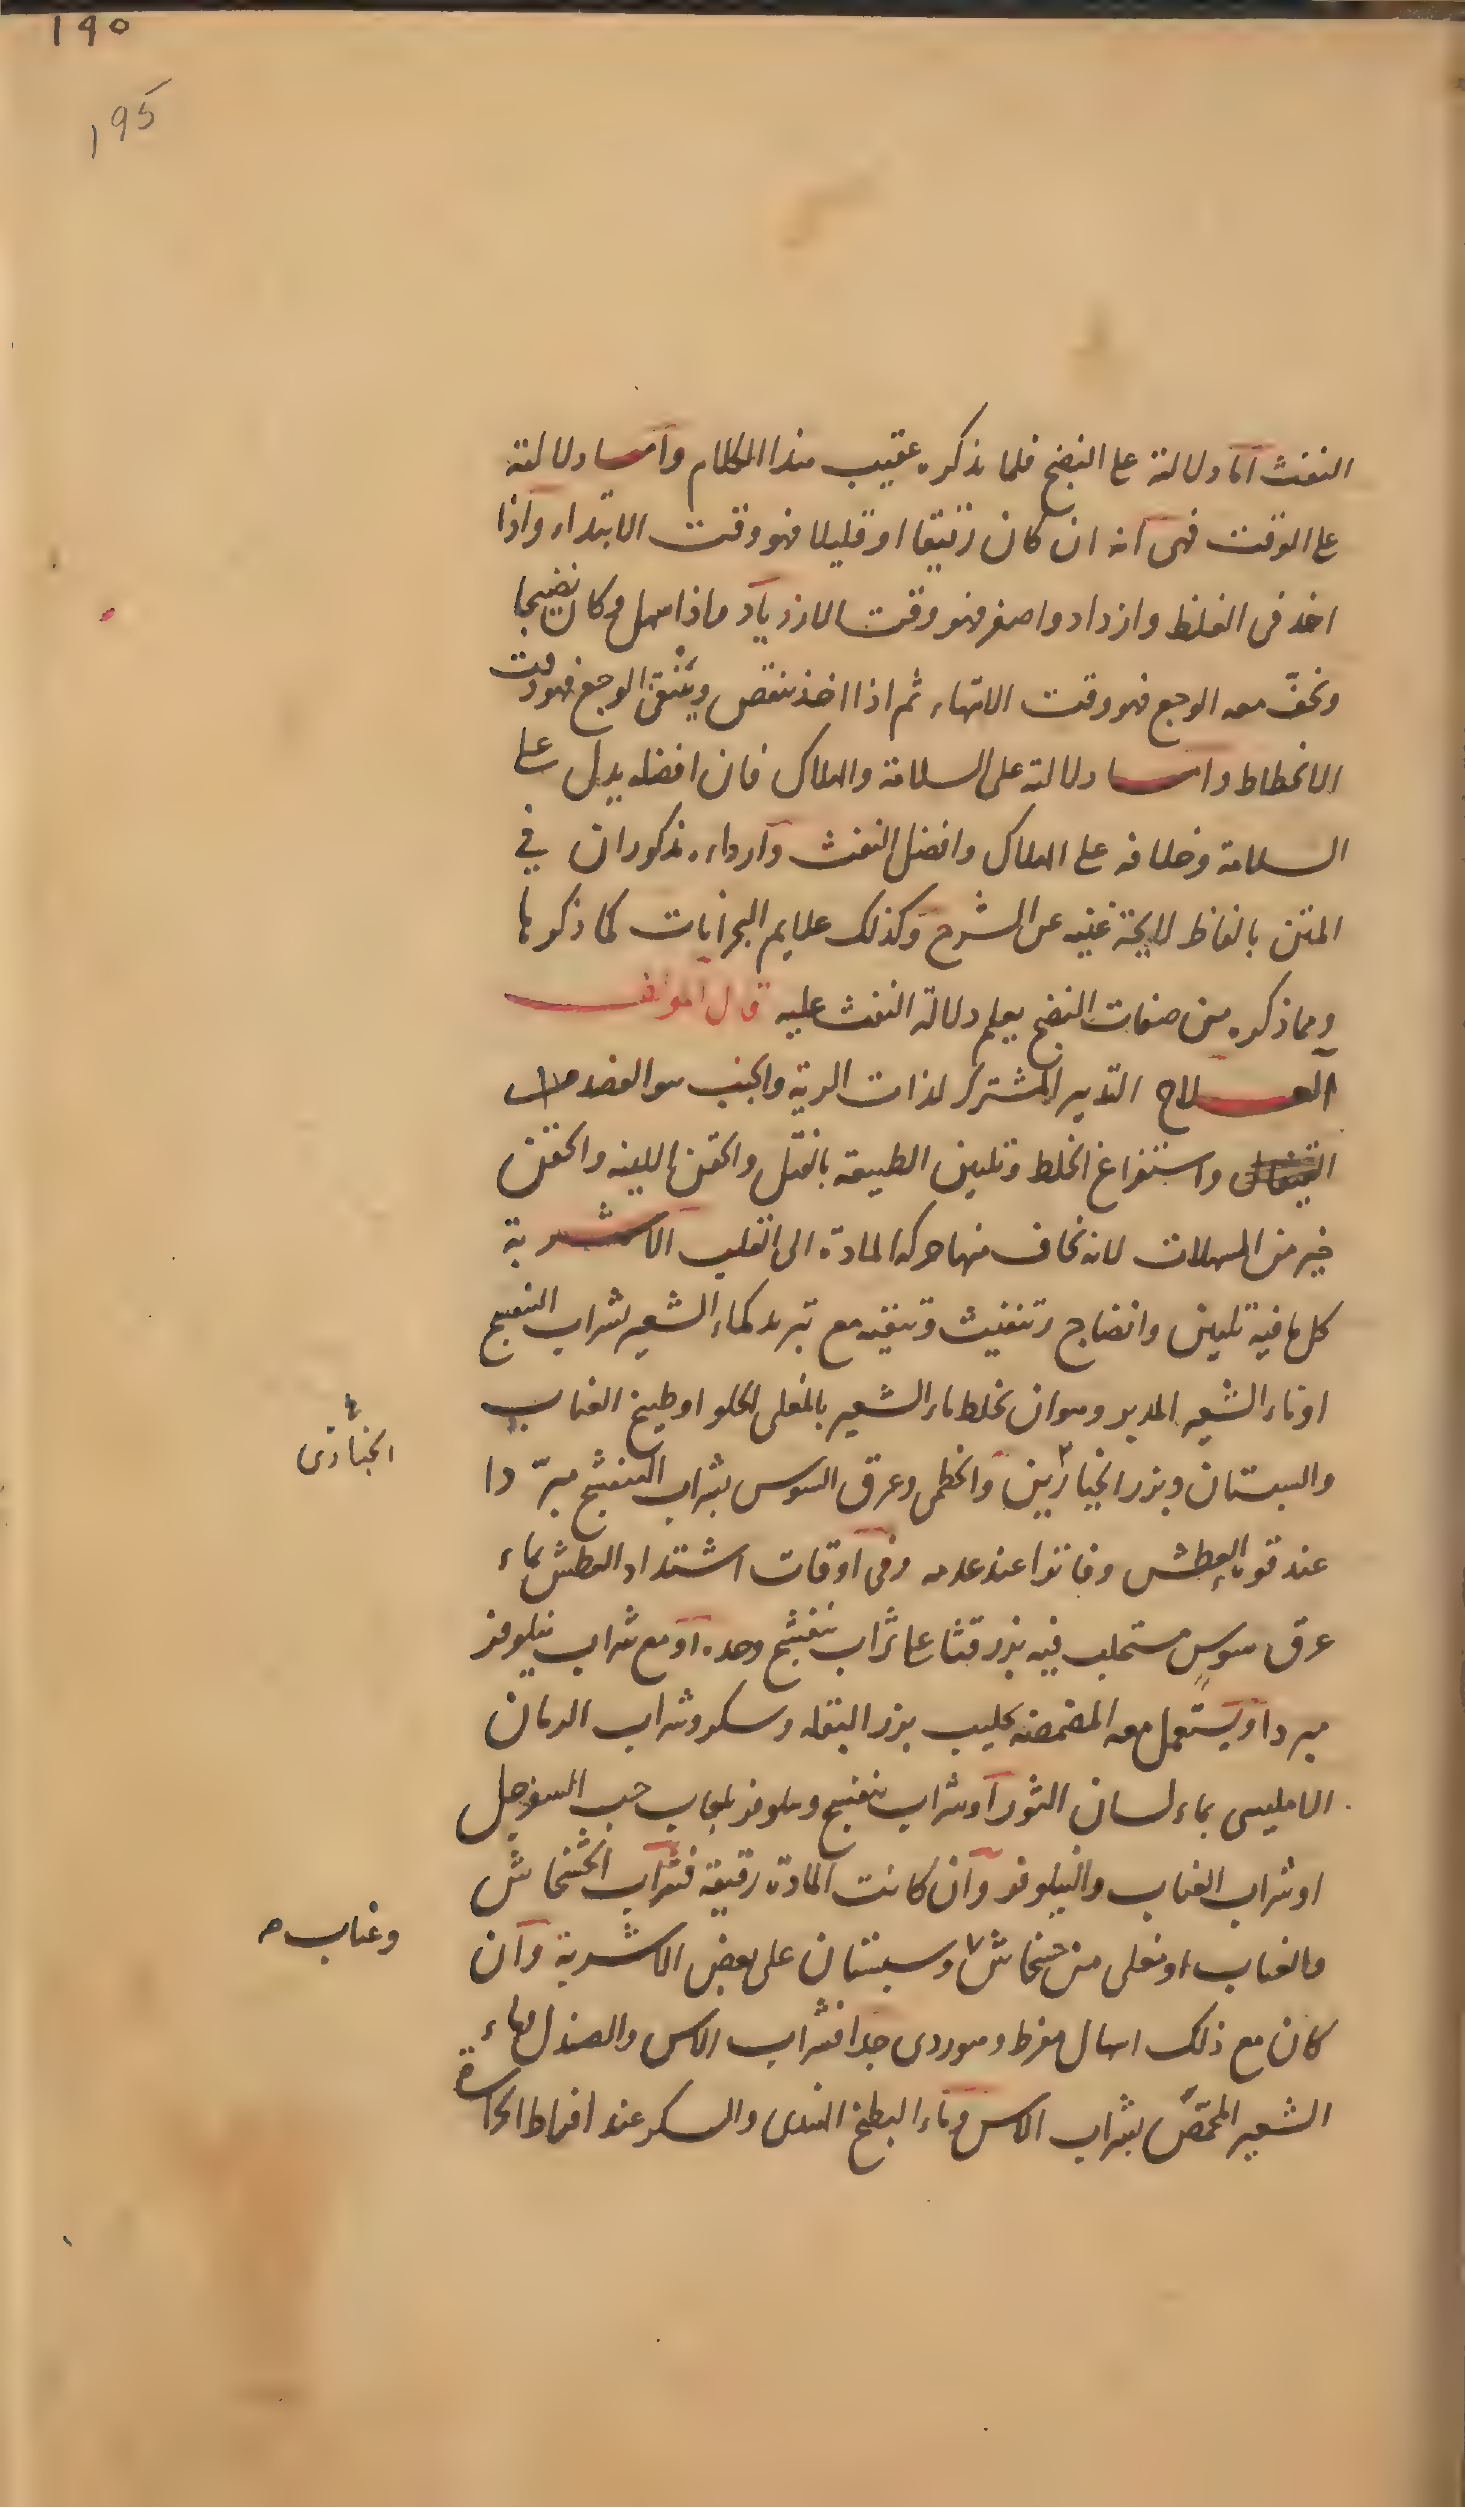 ١٩٥
١٩٥
النفث اما دلالته على النضج فلما يذكره عقيب هذا الكلام واما دلالته
على الوقت فهى انه ان كان رقيقا او قليلا فهو وقت الابتداء واذا
اخذ فى الغلظ وازداد واصفر فهو وقت الازدياد واذا سهل وكان نضيجا
وخف معه الوجع فهو وقت الانتهاء ثم اذا اخذ ينقص الوجع فهو وقت
الانحطاط واما دلالته على السلامة والهلاك فان افضله يدل على
السلامة وخلافه على الهلاك وافضل النفث وارداءه مذكوران في
المتن بالفاظ لايحة غنيه عن الشرح وكذلك علايم البحرانات كما ذكرها
ومما ذكره من صفات النضج يعلم دلالة النفث عليه قال المؤلف
العلاج التدبير المشترك لذات الرية والجنب هو الفصد من
واستفراغ الخلط وتليين الطبيعة بالفتل والحقن اللينه والحقن
خير من المسهلات لانه يخاف منها حركة المادة الى القلب الاشربة
كل ما فيه تليين وانضاج وتنفيث وتنقيه مع تبريد كماء الشعير بشراب البنفسج
او ماء الشعير المدبر وهو ان يخلط ماء الشعير بالمغلى الحلو او طبيخ العناب
والسبستان وبزر الخبازين والخطمى وعرق السوس بشراب البنفسج مبردا
عند قوة العطش وفاترا عند عدمه وفى اوقات اشتداد العطش بماء
عرق سوس مستحلب فيه بزر قثا على شراب بنفسج وحده او مع شراب نيلوفر
مبردا ويستعمل معه المضمضه بحليب بزر البقله وسكر وشراب الرمان
الامليسى بماء لسان الثور او شراب بنفسج ونيلوفر بلعاب حب السفرجل
او شراب العناب والنيلوفر وان كانت المادة رقيقة فشراب الخشخاش
والعناب او مغلى من خشخاش وسبستان على بعض الاشربة وان
كان مع ذلك اسهال مفرط وهو ردى جدا فشراب الاس والصندل بماء
الشعير المحمص بشراب الاس وماء البطيخ الهندى والسكر عند افراط الحرارة
الخبازى
وعناب صح